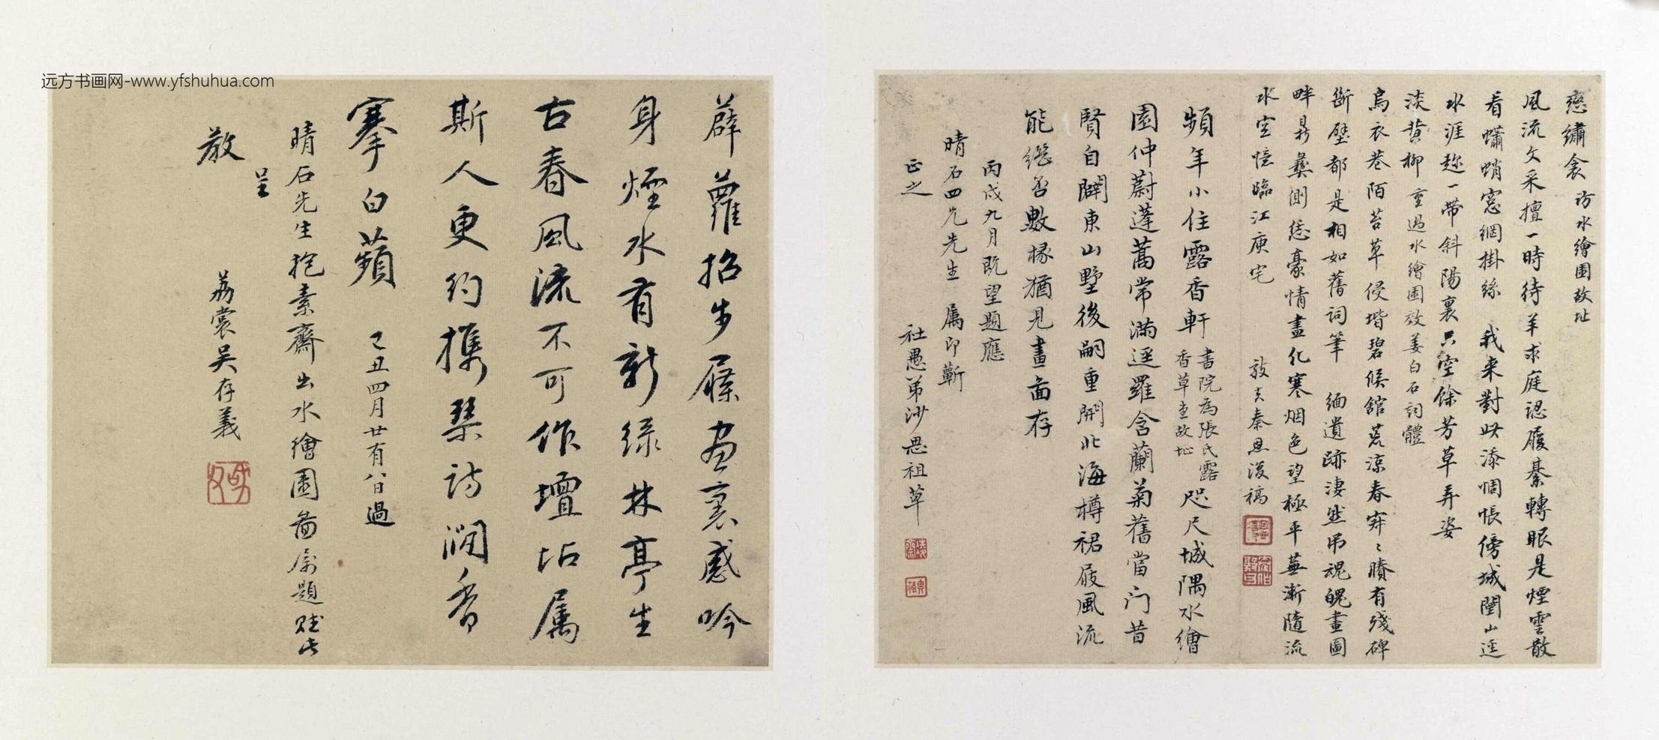 远方书画网-www.yfshuhua.com
戀繡衾 訪水繪園故址
風流文采擅一時待羊求庭認履綦轉眼是煙雲散
看蠨蛸窓網掛絲 我來對此添惆悵傍城闉山逕
水涯趂一帶斜陽裏只空餘芳草弄姿
淡黄柳 重過水繪園效姜白石詞體
烏衣巷陌苔草侵堦碧候館荒涼春寂〻賸有殘碑
斷壁都是相如舊詞筆 緬遺跡淒然弔魂魄畫圖
畔鼎彝側總豪情畫化寒烟色望極平蕪漸隨流
水空憶臨江庾宅
頻年小住露香軒 書院為張氏露香草堂故址 咫尺城隅水繪
園仲蔚蓬蒿常滿逕羅含蘭菊舊當門昔
賢自闢東山墅後嗣重開北海樽裙屐風流
能繼否數椽猶見畫圖存
丙戌九月既望題應
晴石四兄先生 屬即蘄
正之
社愚弟沙思祖草
薜蘿招步屧畫裏感吟
身煙水有新綠林亭生
古春風流不可作壇坫屬
斯人更約攜琴詩澗香
搴白蘋 己丑四月廿有八日過
晴石先生抱素齋出水繪園圖屬題賦此
敬呈
荔裳吳存義